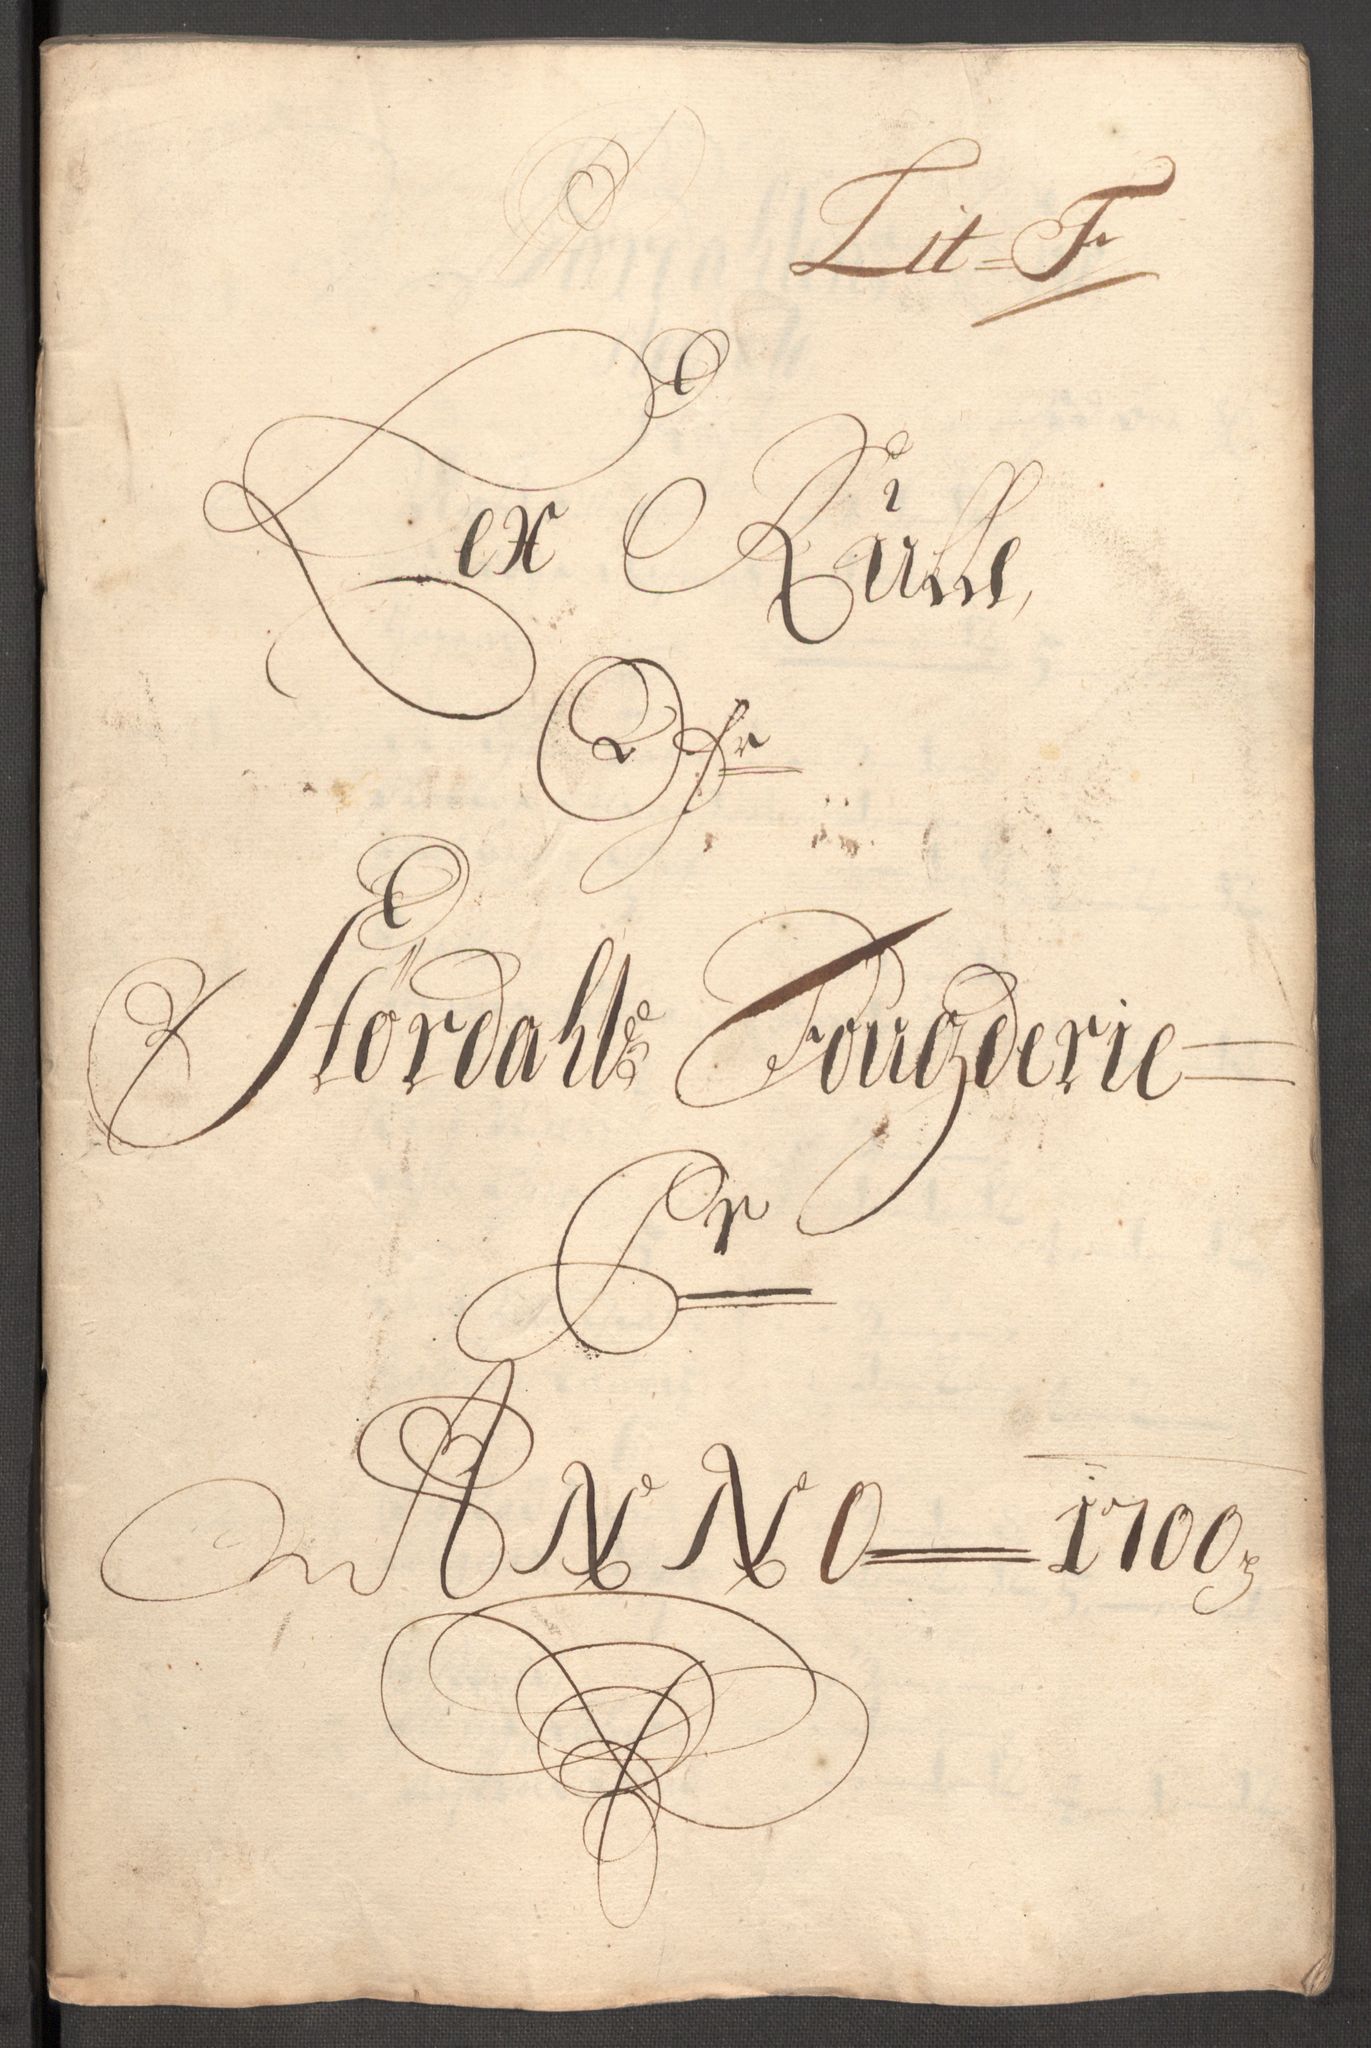 Lit=F
Lex Rulle,
Ofr
Stördahls Fougderie=
Pr
ANNO 1700